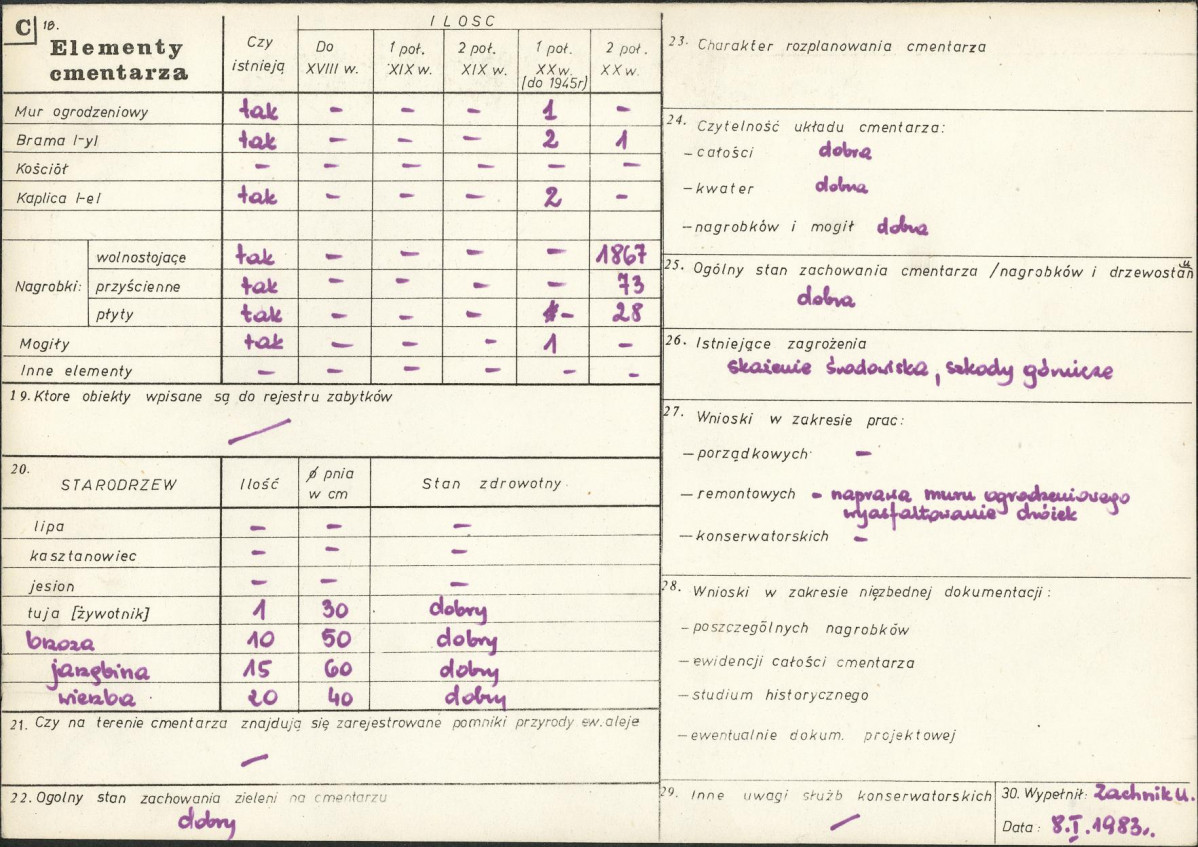 C 18.
Elementy cmentarza
Czy istnieją
ILOSC
Do XVIII w.
1 poł. XIX w.
2 poł. XIX w.
1 poł. XX w. [do 1945r]
2 poł. XX w.
Mur ogrodzeniowy tak – – – 1 –
Brama /-y/ tak – – – 2 1
Kościół – – – – – –
Kaplica /-e/ tak – – – 2 –
Nagrobki:
wolnostojące tak – – – – 1867
przyścienne tak – – – – 73
płyty tak – – – – 28
Mogiły tak – – – 1 –
Inne elementy – – – – – –
19. Ktore obiekty wpisane są do rejestru zabytków
/
20. STARODRZEW Ilość ø pnia w cm Stan zdrowotny
lipa – – –
kasztanowiec – – –
jesion – – –
tuja [żywotnik] 1 30 dobry
brzoza 10 50 dobry
jarzębina 15 60 dobry
wierzba 20 40 dobry
21. Czy na terenie cmentarza znajdują się zarejestrowane pomniki przyrody ew. aleje
–
22. Ogolny stan zachowania zieleni na cmentarzu
dobry
23. Charakter rozplanowania cmentarza
24. Czytelność układu cmentarza:
– całości dobra
– kwater dobra
– nagrobków i mogił dobra
25. Ogólny stan zachowania cmentarza /nagrobków i drzewostanu
dobra
26. Istniejące zagrożenia
skażenie środowiska, szkody górnicze
27. Wnioski w zakresie prac:
– porządkowych –
– remontowych – naprawa muru ogrodzeniowego
wyasfaltowanie dróżek
– konserwatorskich –
28. Wnioski w zakresie nięzbednej dokumentacji:
– poszczególnych nagrobków
– ewidencji całości cmentarza
– studium historycznego
– ewentualnie dokum. projektowej
29. Inne uwagi służb konserwatorskich
/
30. Wypełnił: Zachnik U.
Data: 8.I.1983r.